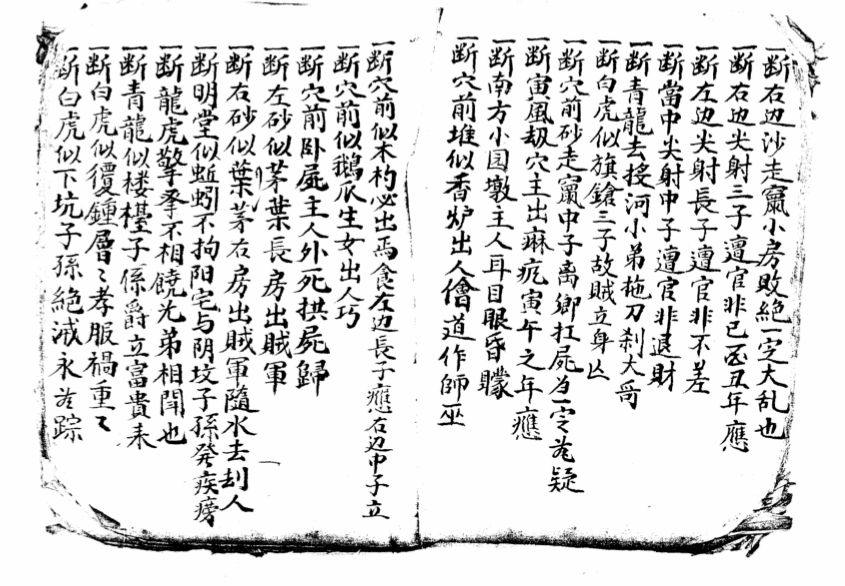 一断右边沙走窜小房败絶一定大乱也
一断右边尖射三子遭官非巳酉丑年應
一断左边尖射長子遭官非不差
一断當中尖射中子遭官非退財
一断青龍去授河小弟拖刀刹大哥
一断白虎似旗鎗三子故賊立身亾
一断穴前砂走竄中子离鄉扛屍为一定无疑
一断寅風刼穴主出麻疯寅午之年應
一断南方小园墩主人耳目眼昏矇
一断穴前堆似香炉出人僧道作師巫
一断穴前似木杓必出焉食左边長子應右边中子立
一断穴前似鵝爪生女出人巧
一断穴前卧屍主人外死拱屍歸
一断左砂似茅葉長房出賊軍
一断右砂似葉茅右房出賊軍隨水去刦人
一断明堂似蚯蚓不拘阳宅与阴坟子孫發疾癆
一断龍虎擎拳不相饒兄弟相閗也
一断青龍似楼檯子係爵立富貴来
一断白虎似覆鍾層〻孝服禍重〻
一断白虎似下坑子孫絕滅永无踪